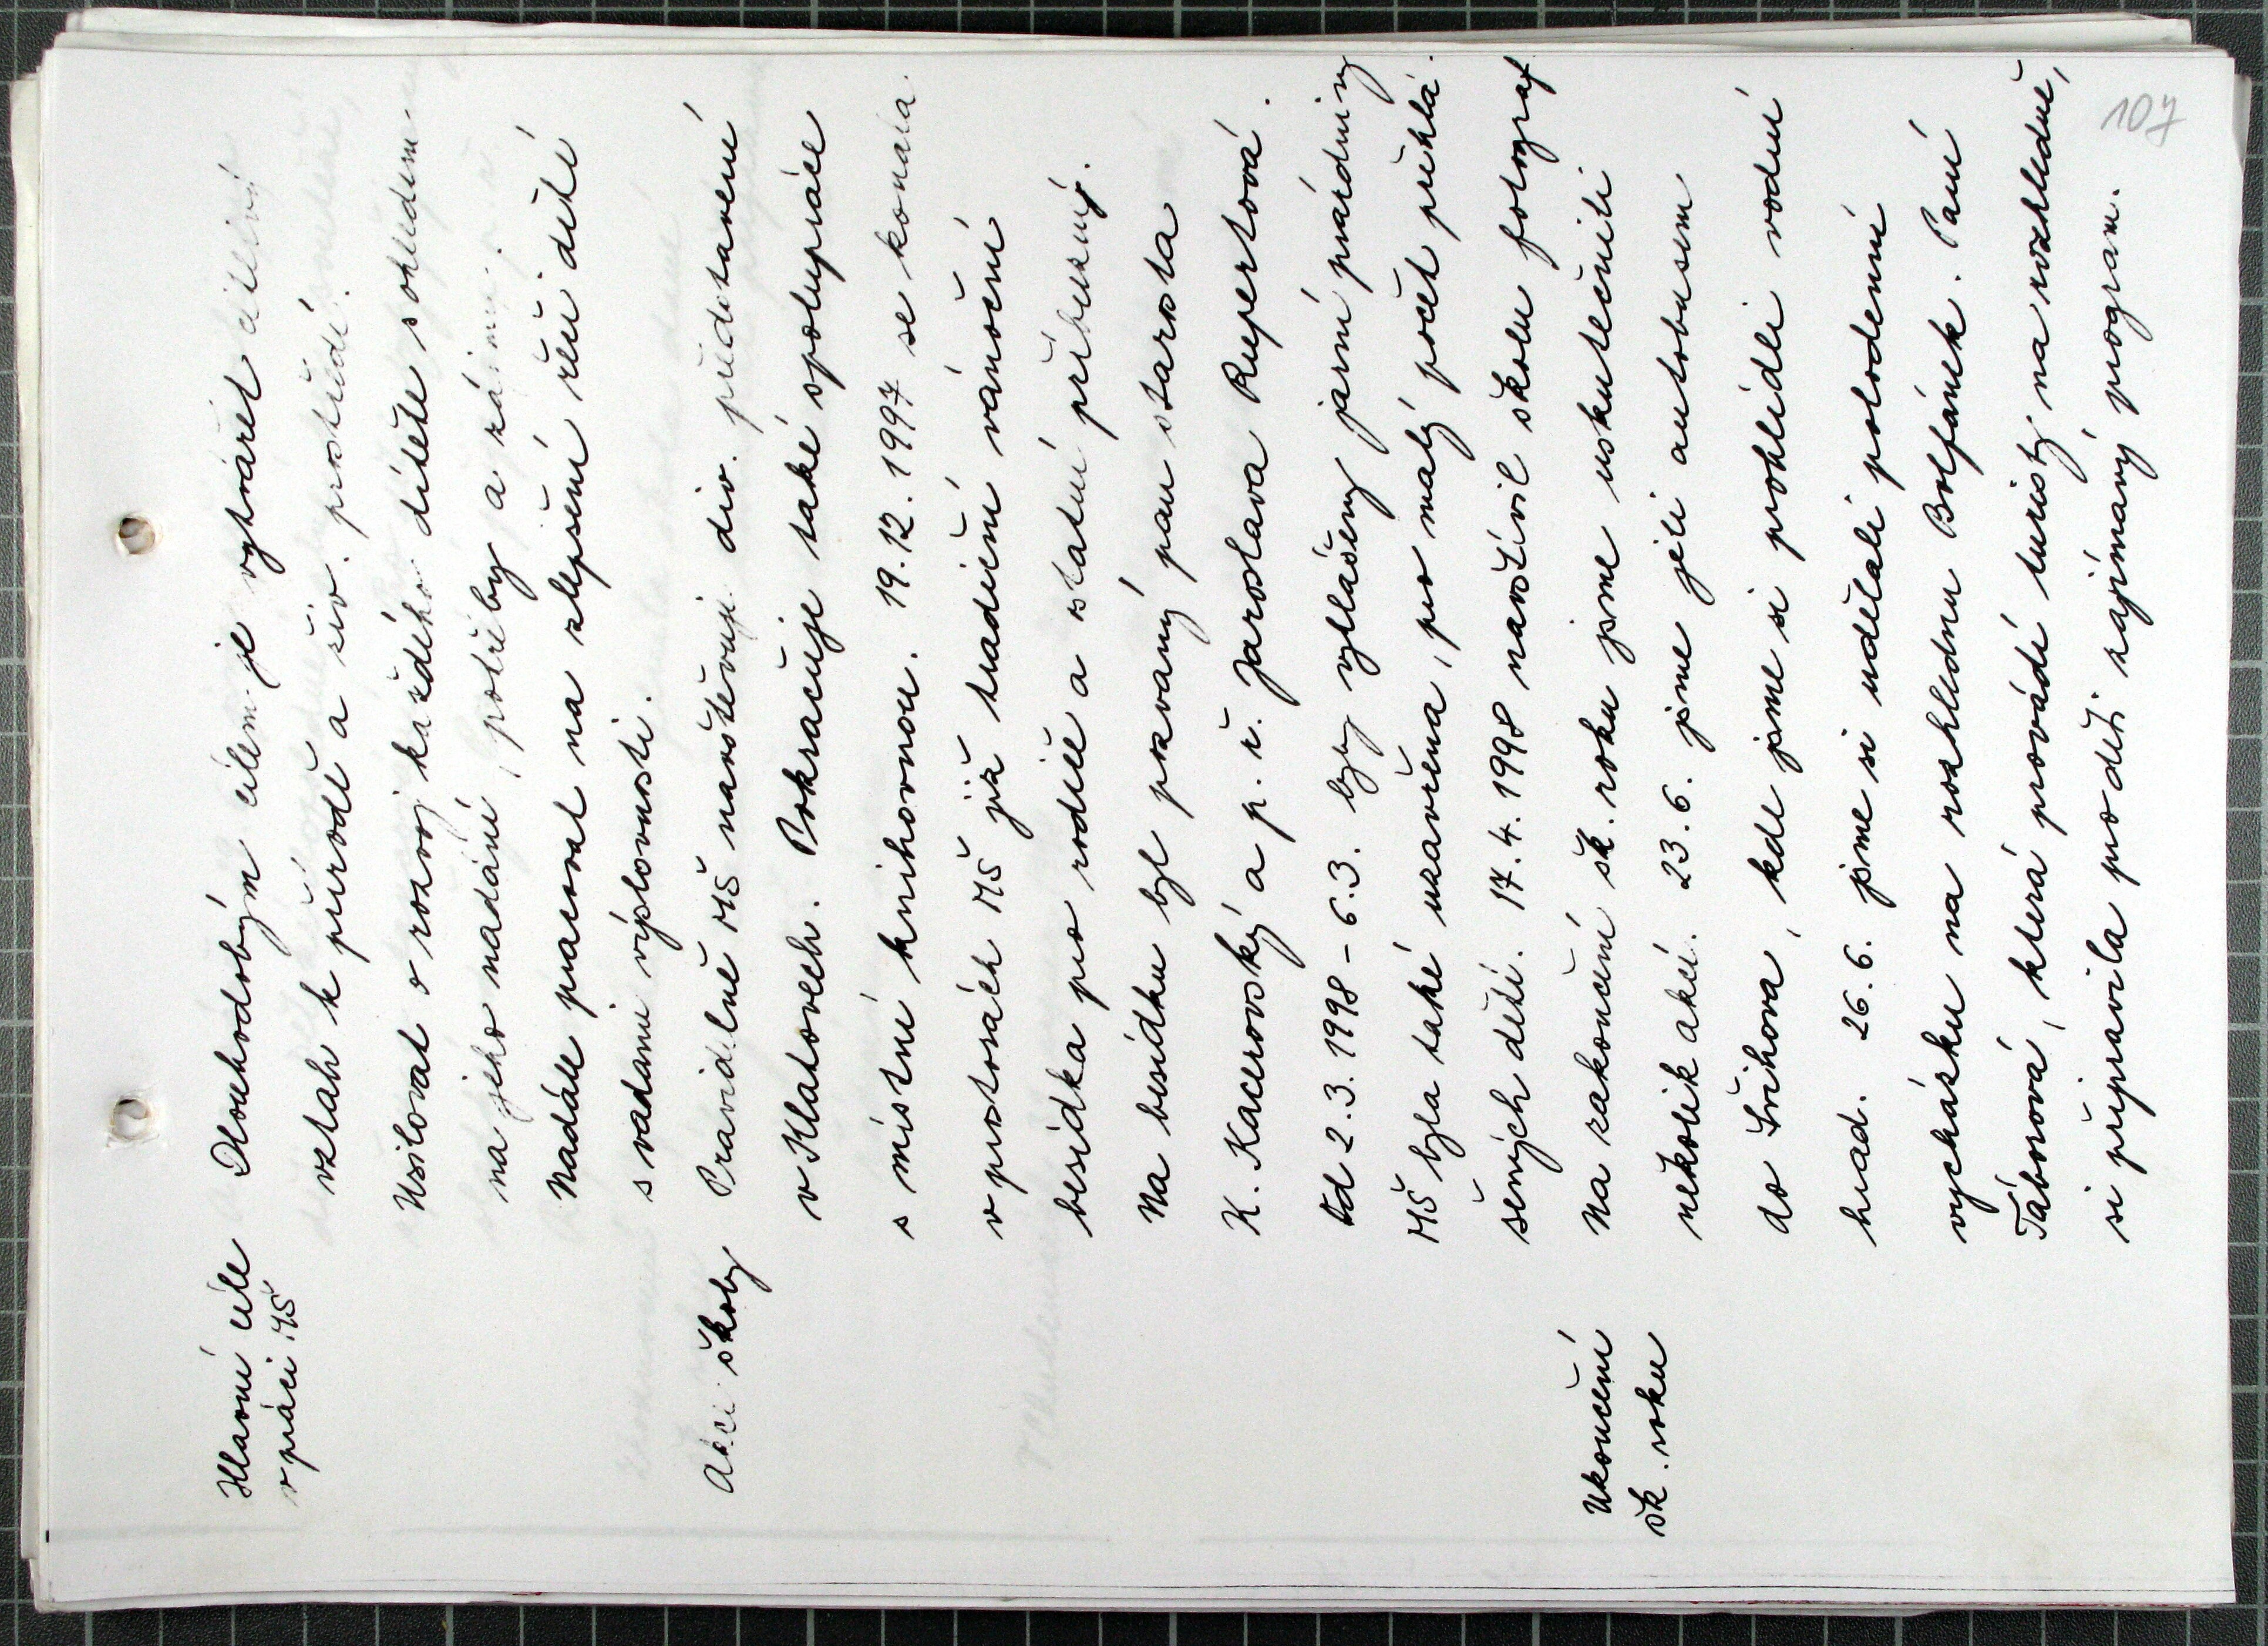 107
Hlavní cíle
v práci MŠ
Dlouhodobým cílem je vytvářet citlivý
vztah k přírodě a živ. prostředí.
Usilovat o rozvoj každého dítěte s ohledem
na jeho nadání, potřeby a zájmy.
Nadále pracovat na zlepšení řeči dětí
s vadami výslovnosti.
Akce školy
Pravidelně MŠ navštěvuje div. představení
v Klatovech. Pokračuje také spolupráce
s místní knihovnou. 19.12.1997 se konala
v prostorách MŠ již tradiční vánoční
besídka pro rodiče a ostatní příbuzný.
Na besídku byl pozvaný pan starosta
K. Kacerovský a p. ř. Jaroslava Rupertová.
Od 2.3.1998 – 6.3. byly vyhlášeny jarní prázdniny
MŠ byla také uzavřena, pro malý počet přihlá-
šených dětí. 17.4.1998 navštívil školu fotograf.
Ukončení
šk. roku
Na zakončení šk. roku jsme uskutečnili
několik akcí. 23.6. jsme jeli autobusem
do Švihova, kde jsme si prohlédli vodní
hrad. 26.6. jsme si udělali polodenní
vycházku na rozhlednu Bolfánek. Paní
Táborová, která provádí turisty na rozhledně,
si připravila pro děti zajímavý program.